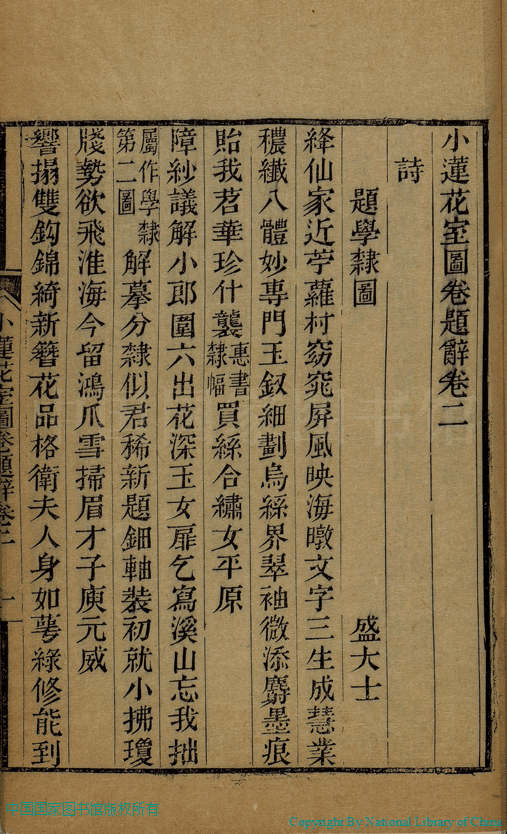 小蓮花室圖卷題辭卷二
詩
題學隸圖
盛大士
絳仙家近苧蘿村窈窕屏風映海暾文字三生成慧業
穠纖八體妙專門玉釵細劃烏絲界翠袖微添麝墨痕
貽我茗華珍什襲惠書隸幅買絲合繡女平原
障紗議解小郎圍六出花深玉女扉乞寫溪山忘我拙
屬作學隸第二圖解摹分隸似君稀新題鈿軸裝初就小拂瓊
牋勢欲飛淮海今留鴻爪雪掃眉才子庾元威
響搨雙鈎錦綺新簪花品格衛夫人身如萼綠修能到
小蓮花室圖卷題辭卷二
一
中国国家图书馆版权所有
Copyright By National Library of China